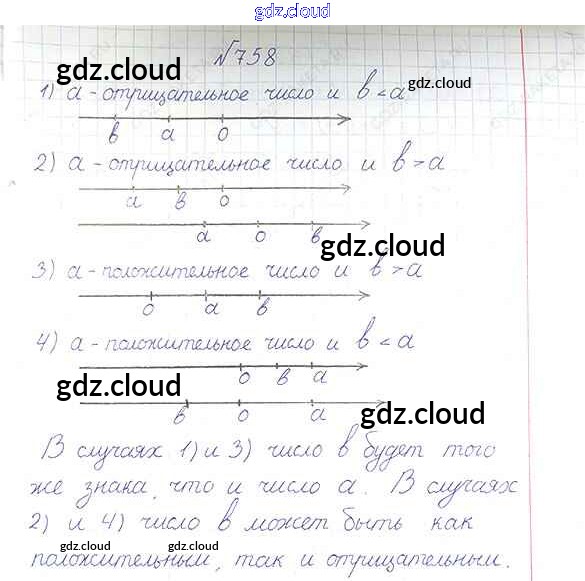 gdz.cloud
№758
gdz.cloud
1) а - отрицательное число и в < а gdz.cloud
в а 0
2) а - отрицательное число и в > а
а в 0
а 0 в
gdz.cloud
3) а - положительное число и в > а
0 а в
4) а - положительное число и в < а
0 в а
gdz.cloud gdz.cloud
в 0 а
В случаях 1) и 3) число в будет того
же знака, что и число а. В случаях
2) и 4) число в может быть как
gdz.cloud gdz.cloud
положительным, так и отрицательным.